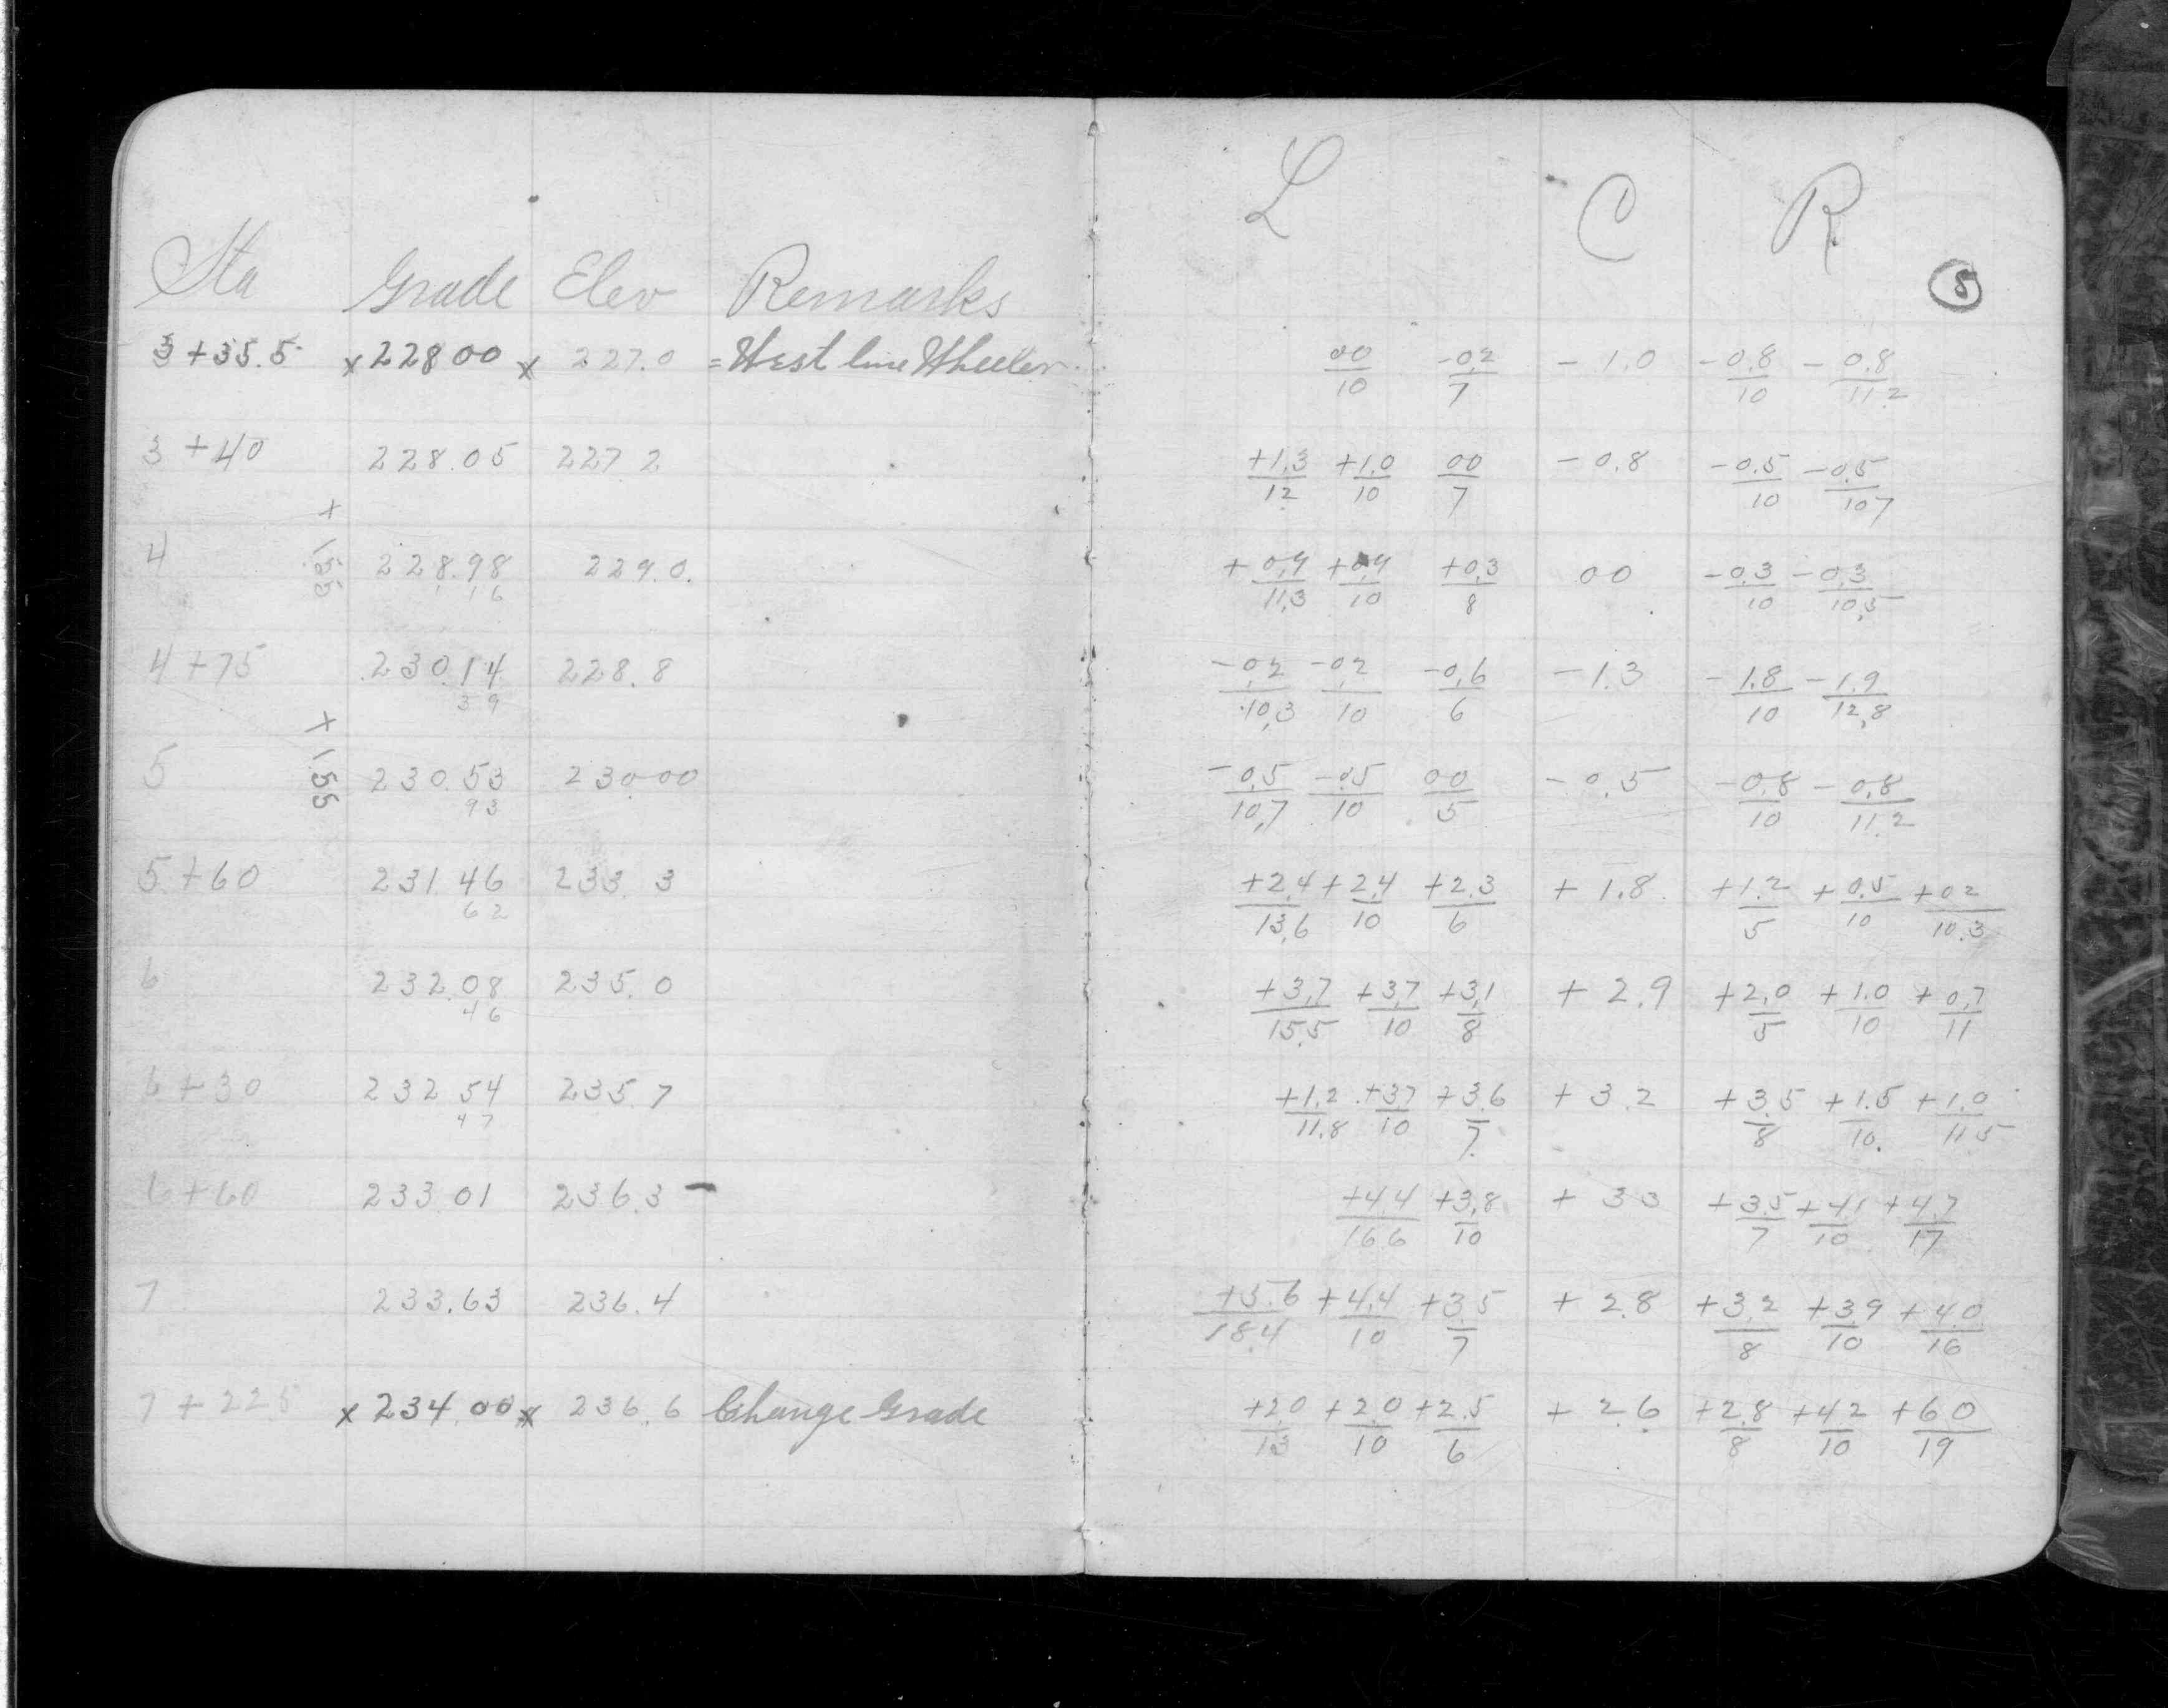 Sta Grade Elev Remarks
3+35.5 x 228 00 x 227.0 = West line Wheeler
3+40 228.05 227 2
4 228.98 229.0.
1 16
+ 1.55
4+75 230.14 228.8
39
5 230.53 230.00
93
+ 1.55
5+60 231.46 233.3
62
6 232.08 235.0
46
6+30 232 54 235.7
47
6+60 233 01 236.3 -
7 233.63 236.4
7+225 x 234.00 x 236.6 Change Grade
L C R
8
00/10 -0.2/7 -1.0 -0.8/10 -0.8/11.2
+1.3/12 +1.0/10 00/7 -0.8 -0.5/10 -0.5/107
+0.9/11.3 +0.9/10 +0.3/8 00 -0.3/10 -0.3/10.5
-0.2/10.3 -0.2/10 -0.6/6 -1.3 -1.8/10 -1.9/12.8
-0.5/10.7 -0.5/10 00/5 -0.5 -0.8/10 -0.8/11.2
+2.4/13.6 +2.4/10 +2.3/6 +1.8 +1.2/5 +0.5/10 +02/10.3
+3.7/15.5 +3.7/10 +3.1/8 +2.9 +2.0/5 +1.0/10 +0.7/11
+1.2/11.8 +37/10 +3.6/7 +3.2 +3.5/8 +1.5/10 +1.0/11 5
+4.4/16 6 +3.8/10 +33 +3.5/7 +4.1/10 +4.7/17
+5.6/18.4 +4.4/10 +3.5/7 +2.8 +3.2/8 +3.9/10 +4.0/16
+2.0/13 +2.0/10 +2.5/6 +2.6 +2.8/8 +4.2/10 +6.0/19